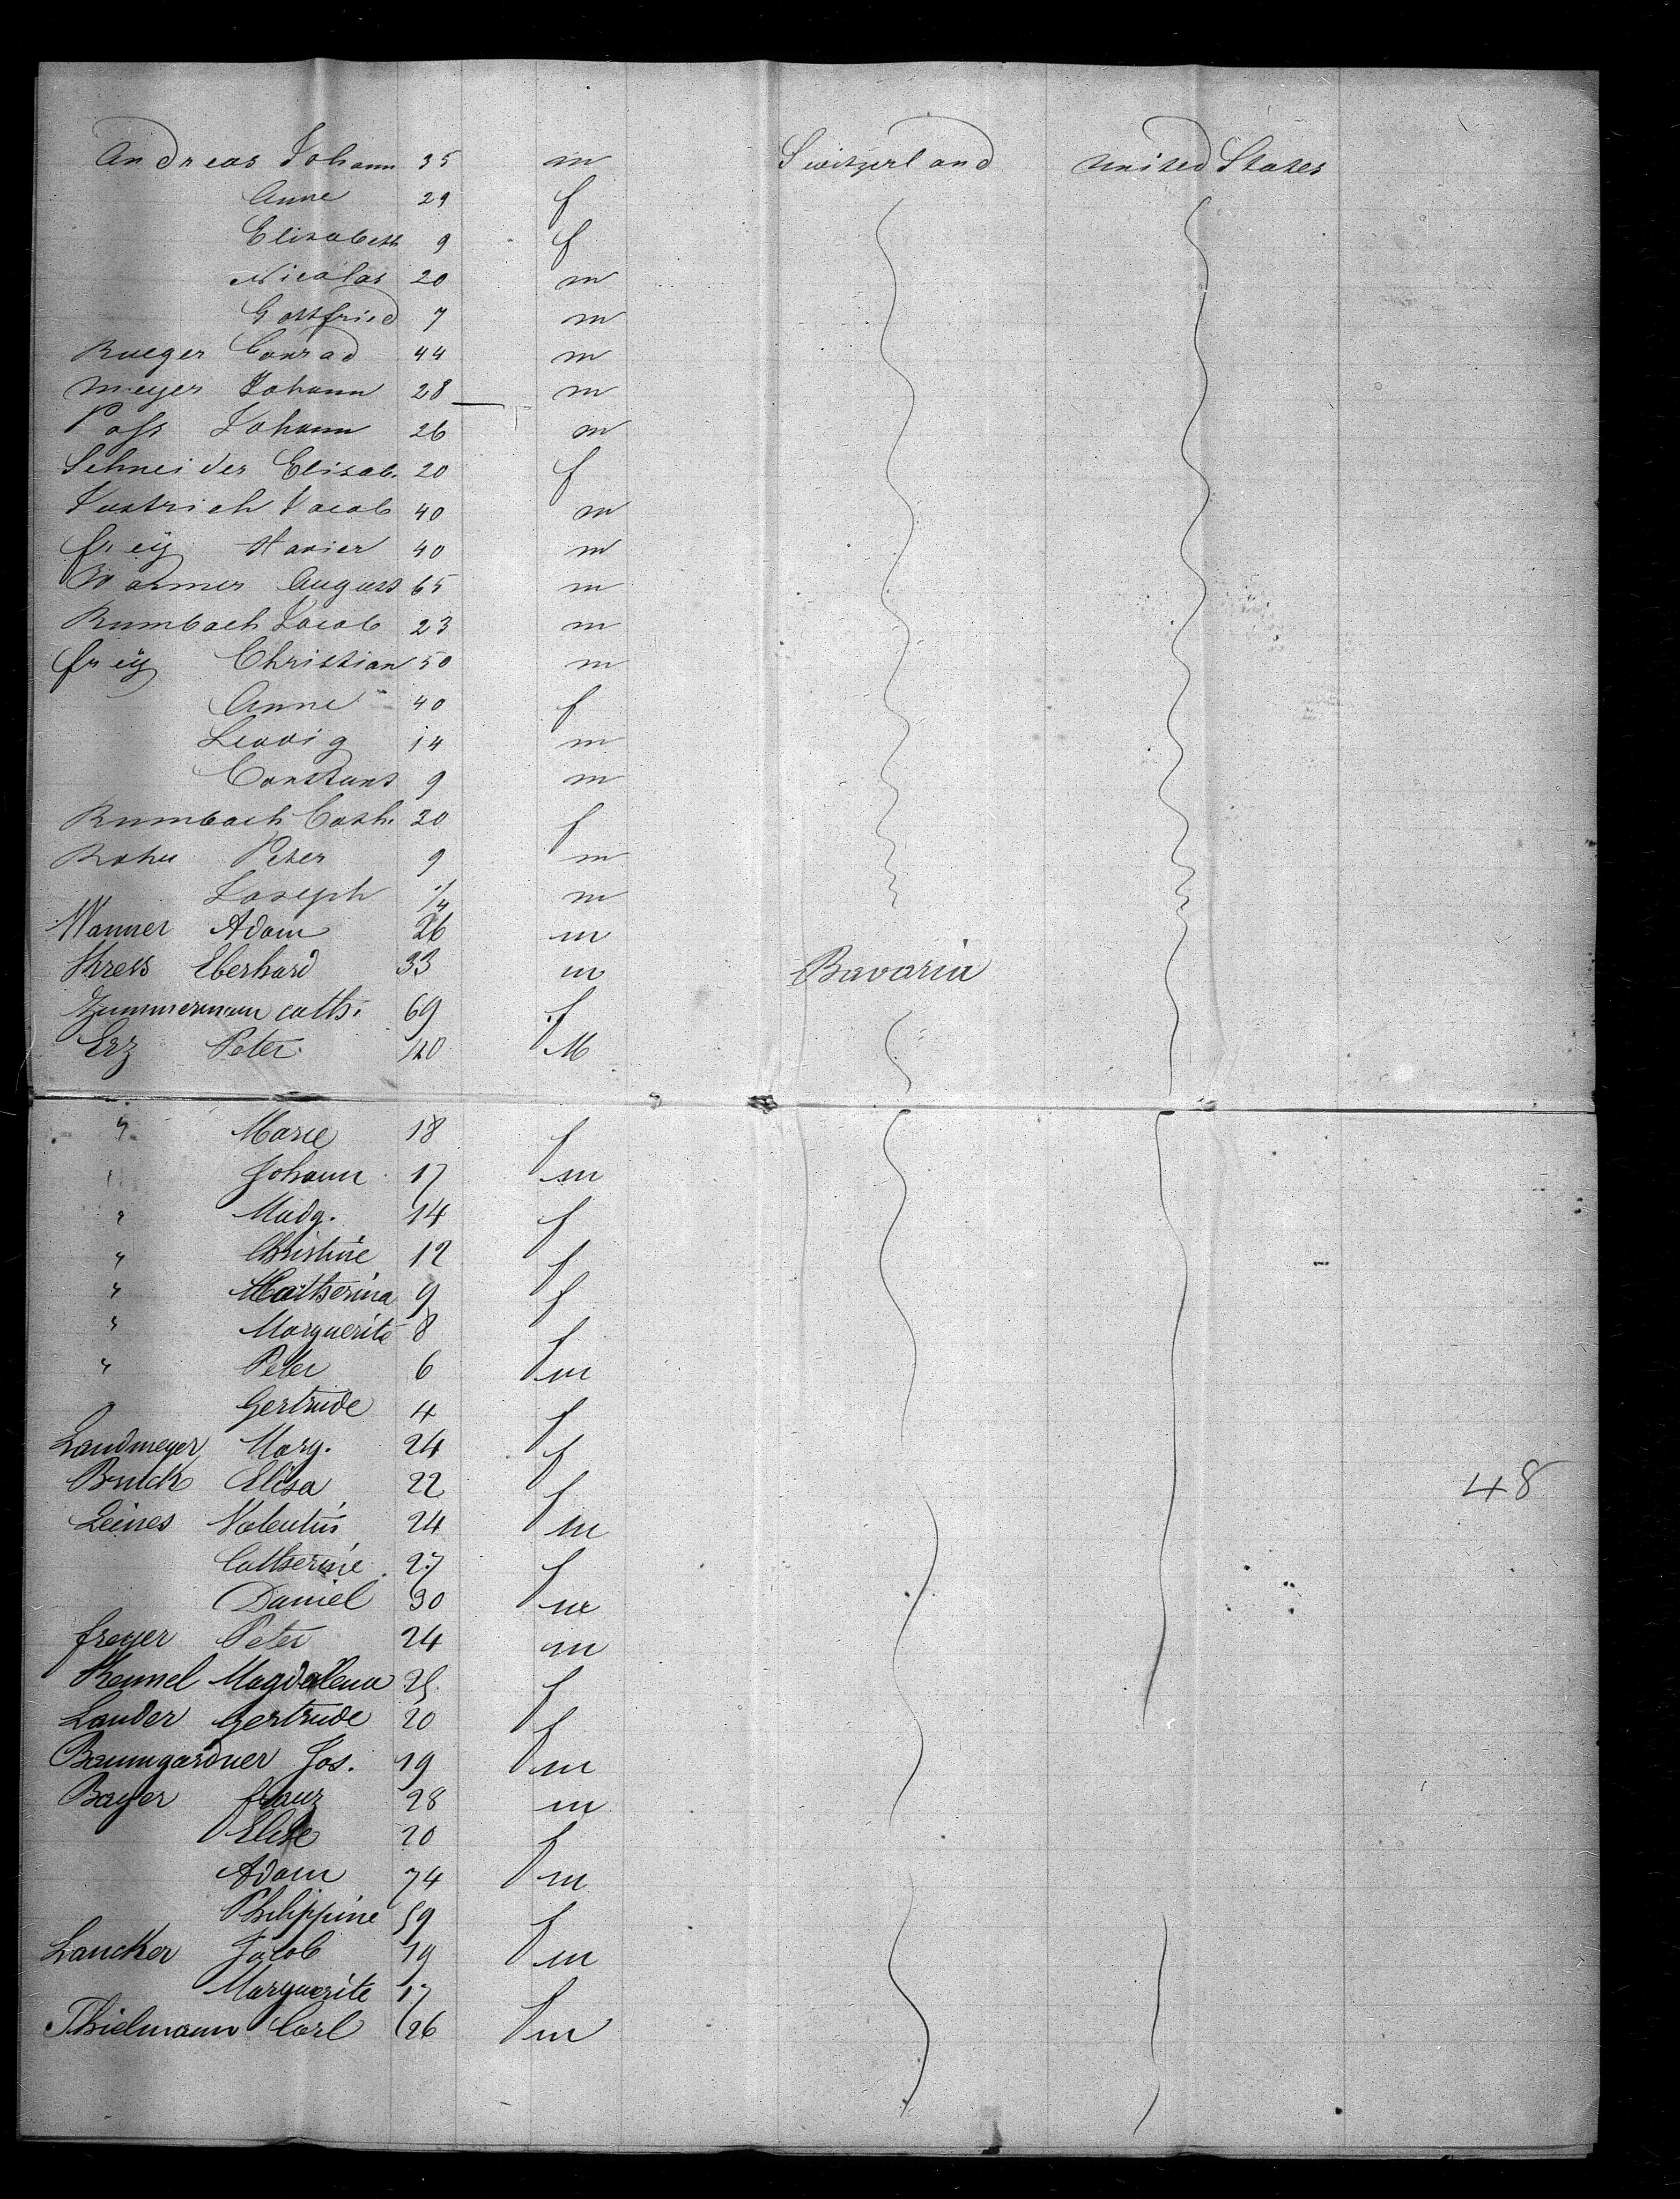 Andreas Johann 35 m Switzerland United States
Anne 29 f
Elisabeth 9 f
Nicolas 20 m
Gottfried 7 m
Rueger Conrad 44 m
Meyer Johann 28 m
Pass Johann 26 m
Schneider Elisab. 20 f
Jacob 40 m
frey Xavier 40 m
August 65 m
Rumbach Jacob 23 m
frey Christian 50 m
Anne 40 f
Ludvig 14 m
Constant 9 m
Rumbach Cath. 20 f
Peter 9 m
Joseph 1/4 m
Wanner Adam 26 m
Kress Eberhard 33 m Bavaria
Zimmermann cath. 69 f
Erz Peter 40 M
" Marie 18 f
" Johann 17 m
" Madg. 14 f
" Christine 12 f
" Catherina 9 f
" Marguerite 8 f
" Peter 6 m
" Gertrude 4 f
Landmeyer Marg. 24 f
Bruck Elisa 22 f 48
Leines Valentin 24 m
Catherine 27 f
Daniel 30 m
freyer Peter 24 m
Kennel Magdalena 25 f
Lander Gertrude 20 f
Baumgardner Jos. 19 m
Bayer franz 28 m
Elise 20 f
Adam 74 m
Philippine 59 f
Lancker Jacob 19 m
Marguerite 17 f
Thielmann Carl 26 m